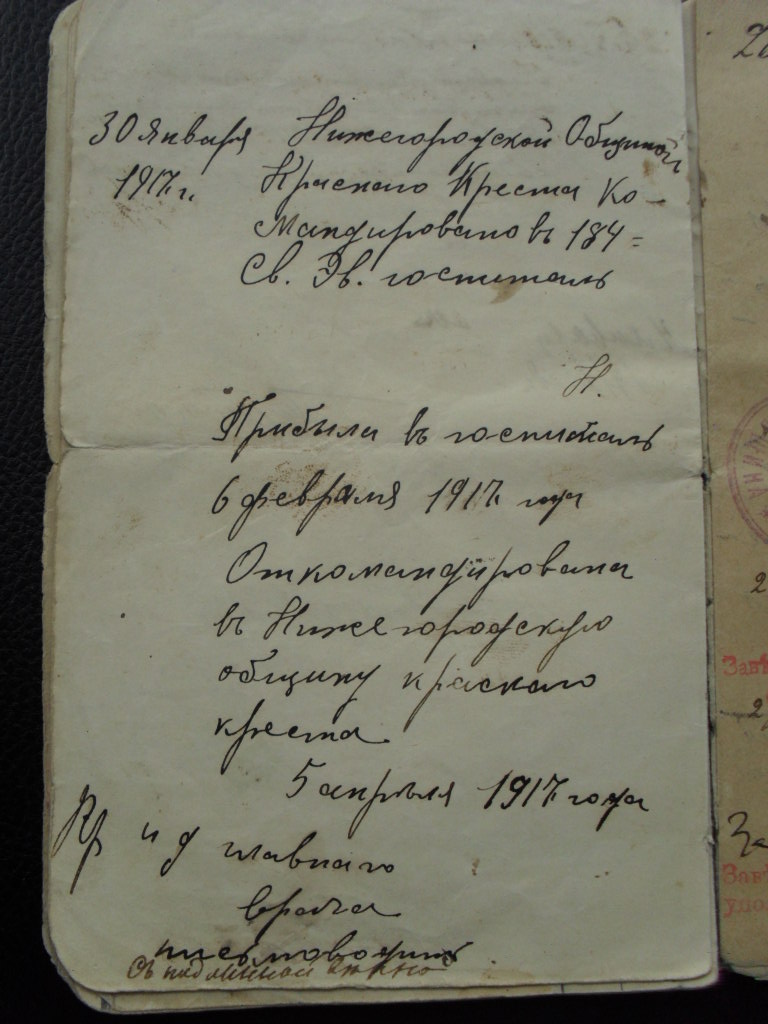 30 января Нижегородской Общиной
1917 г. Краснаго Креста Ко-
мандирована въ 184=
Св. Эв. госпиталь
Н.
Прибыла въ госпиталь
6 февраля 1917 года
Откомандирована
въ Нижегородскую
общину краснаго
креста
5 апрѣля 1917 года
и д главнаго
врача
письмоводитель
Съ подлинной вѣрно
Завѣ
За
Завѣ
упо